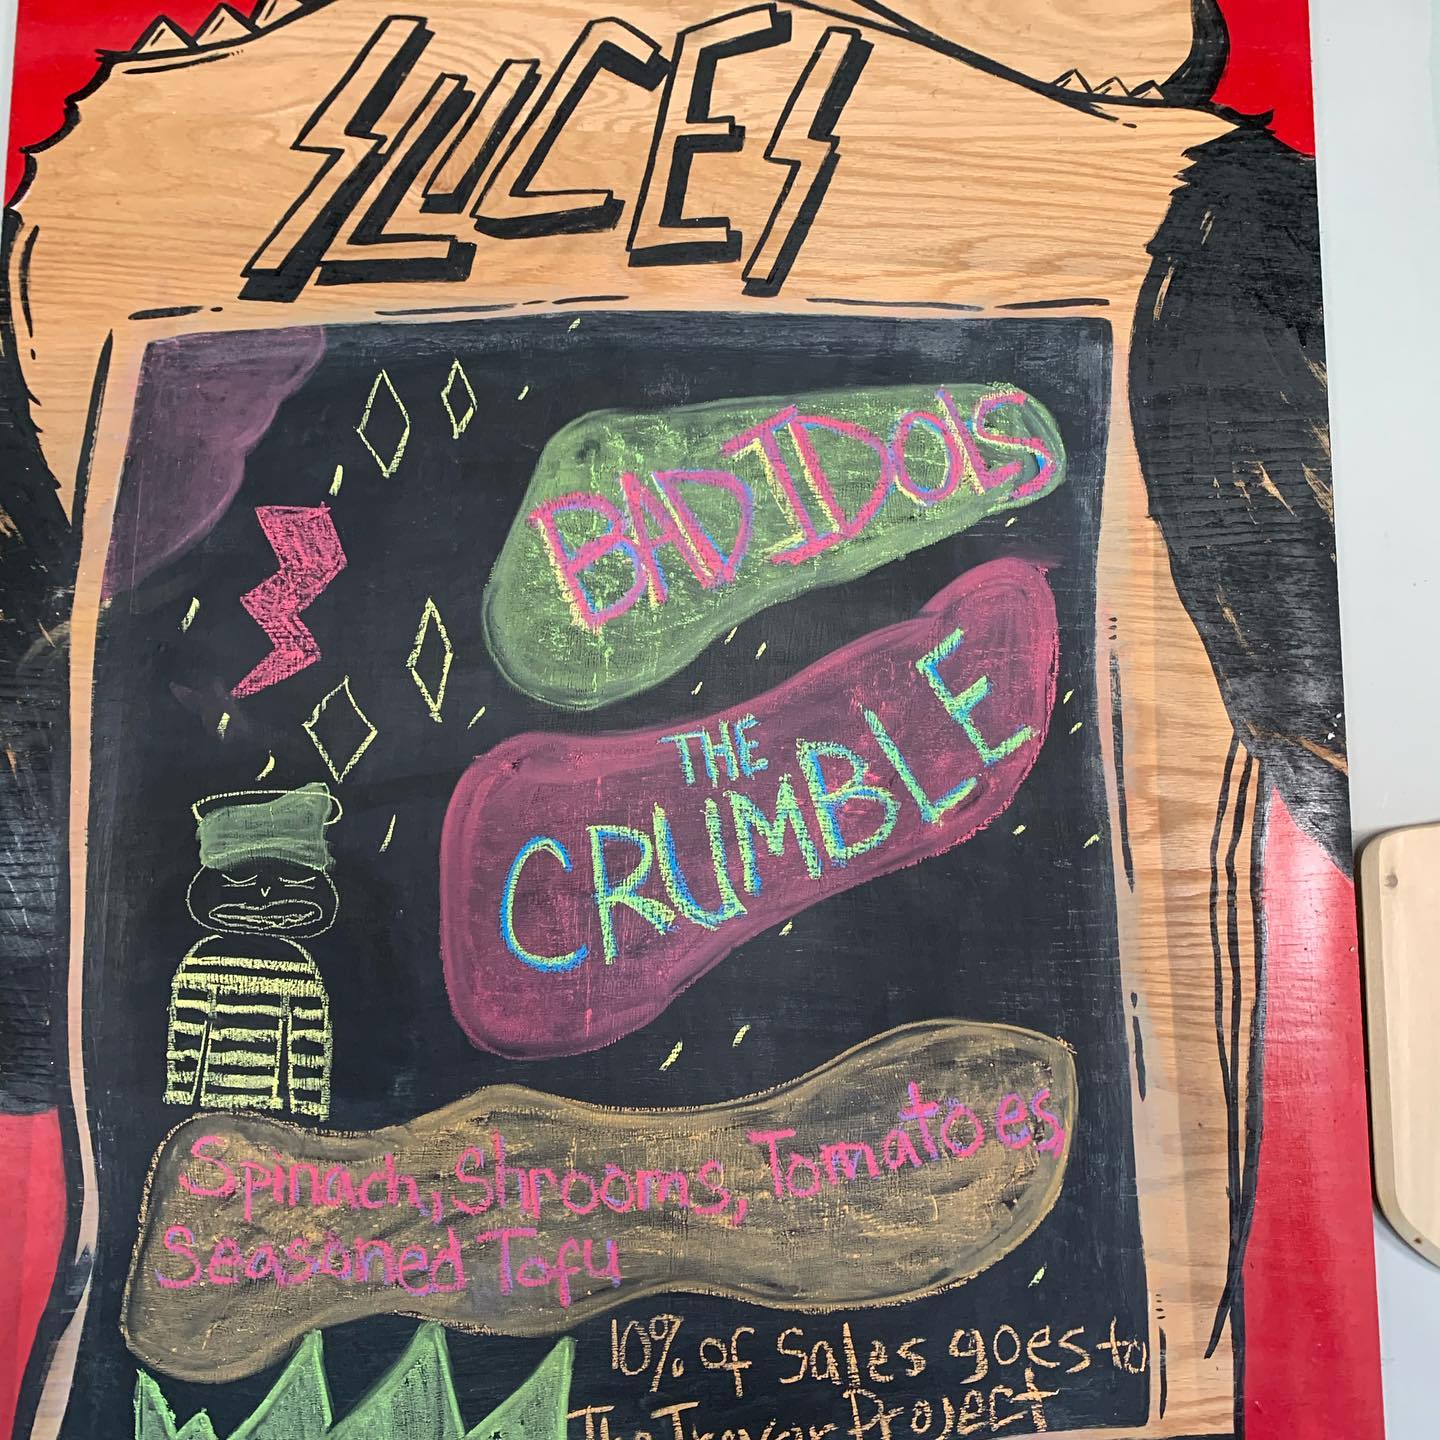 SLICES
BAD IDOLS
THE
CRUMBLE
Spinach, Shrooms, Tomatoes,
Seasoned Tofu
10% of Sales goes to
The Trevor Project